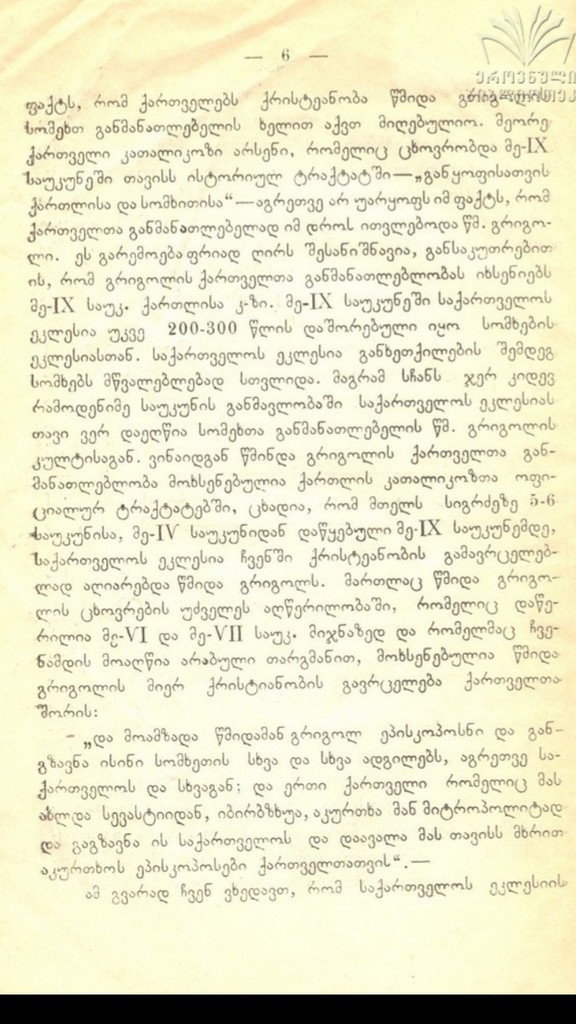 — 6 —
ეროვნული
ბიბლიოთეკა
ფაქტს, რომ ქართველებს ქრისტეანობა წმიდა
სომეხთ განმანათლებელის ხელით აქვთ მიღებულიო. მეორე
ქართველი კათალიკოზი არსენი, რომელიც ცხოვრობდა მე-IX
საუკუნეში თავისს ისტორიულ ტრაქტატში—„განყოფისათვის
ქართლისა და სომხითისა“—აგრეთვე არ უარყოფს იმ ფაქტს, რომ
ქართველთა განმანათლებელად იმ დროს ითვლებოდა წმ. გრიგო-
ლი. ეს გარემოება ფრიად ღირს შესანიშნავია, განსაკუთრებით
ის, რომ გრიგოლის ქართველთა განმანათლებლობას იხსენიებს
მე-IX საუკ. ქართლისა კ-ზი. მე-IX საუკუნეში საქართველოს
ეკლესია უკვე 200-300 წლის დაშორებული იყო სომხების
ეკლესიასთან. საქართველოს ეკლესია განხეთქილების შემდეგ
სომხებს მწვალებლებად სთვლიდა. მაგრამ სჩანს ჯერ კიდევ
რამოდენიმე საუკუნის განმავლობაში საქართველოს ეკლესიას
თავი ვერ დაეღწია სომეხთა განმანათლებელის წმ. გრიგოლის
კულტისაგან. ვინაიდგან წმინდა გრიგოლის ქართველთა გან-
მანათლებლობა მოხსენებულია ქართლის კათალიკოზთა ოფი-
ციალურ ტრაქტატებში, ცხადია, რომ მთელს სიგრძეზე 5-6
საუკუნისა, მე-IV საუკუნიდან დაწყებული მე-IX საუკუნემდე,
საქართველოს ეკლესია ჩვენში ქრისტეანობის გამავრცელებ-
ლად აღიარებდა წმიდა გრიგოლს. მართლაც წმიდა გრიგო-
ლის ცხოვრების უძველეს აღწერილობაში, რომელიც დაწე-
რილია მე-VI და მე-VII საუკ. მიჯნაზედ და რომელმაც ჩვე-
ნამდის მოაღწია არაბული თარგმანით, მოხსენებულია წმიდა
გრიგოლის მიერ ქრისტიანობის გავრცელება ქართველთა
შორის:
„და მოამზადა წმიდამან გრიგოლ ეპისკოპოსნი და გან-
გზავნა ისინი სომხეთის სხვა და სხვა ადგილებს, აგრეთვე სა-
ქართველოს და სხვაგან; და ერთი ქართველი რომელიც მას
ახლდა სევასტიიდან, იბირბზხუა, აკურთხა მან მიტროპოლიტად
და გაგზავნა ის საქართველოს და დაავალა მას თავისს მხრით
აკურთხოს ეპისკოპოსები ქართველთათვის“.—
ამ გვარად ჩვენ ვხედავთ, რომ საქართველოს ეკლესიის